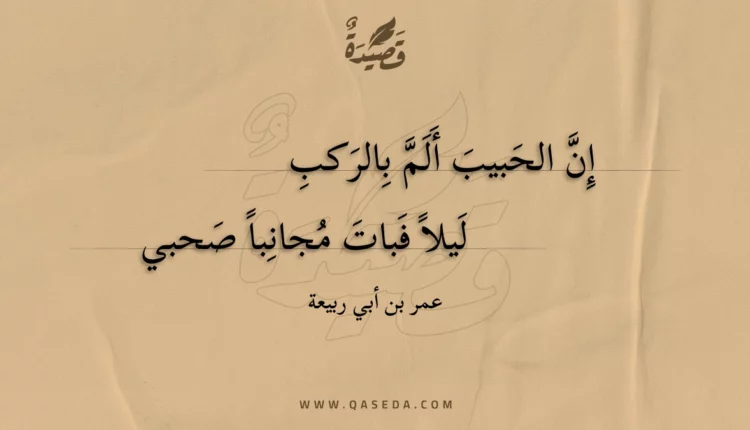 قَصِيدَةٌ
إِنَّ الحَبيبَ أَلَمَّ بِالرَكبِ
لَيلاً فَباتَ مُجانِباً صَحبي
عمر بن أبي ربيعة
WWW.QASEDA.COM